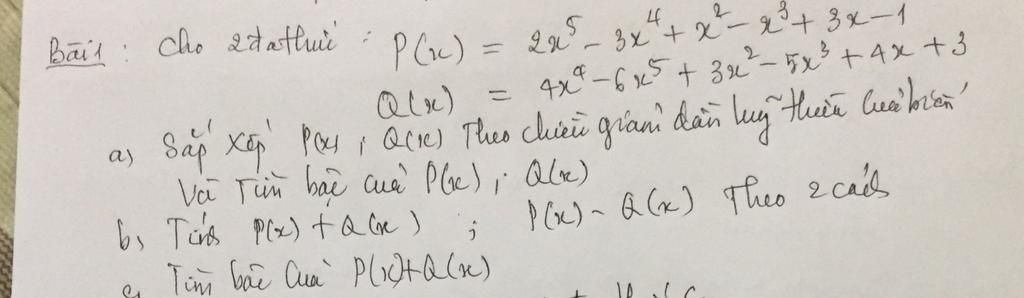 Bài 1 : Cho 2 đa thức : P(x) = 2x⁵ - 3x⁴ + x² - x³ + 3x - 1
Q(x) = 4x⁴ - 6x⁵ + 3x² - 5x³ + 4x + 3
a, Sắp xếp P(x) ; Q(x) Theo chiều giảm dần luỹ thừa của biến
Và Tìm bậc của P(x) ; Q(x)
b, Tính P(x) + Q(x) ; P(x) - Q(x) Theo 2 cách
c, Tìm bậc của P(x)+Q(x)